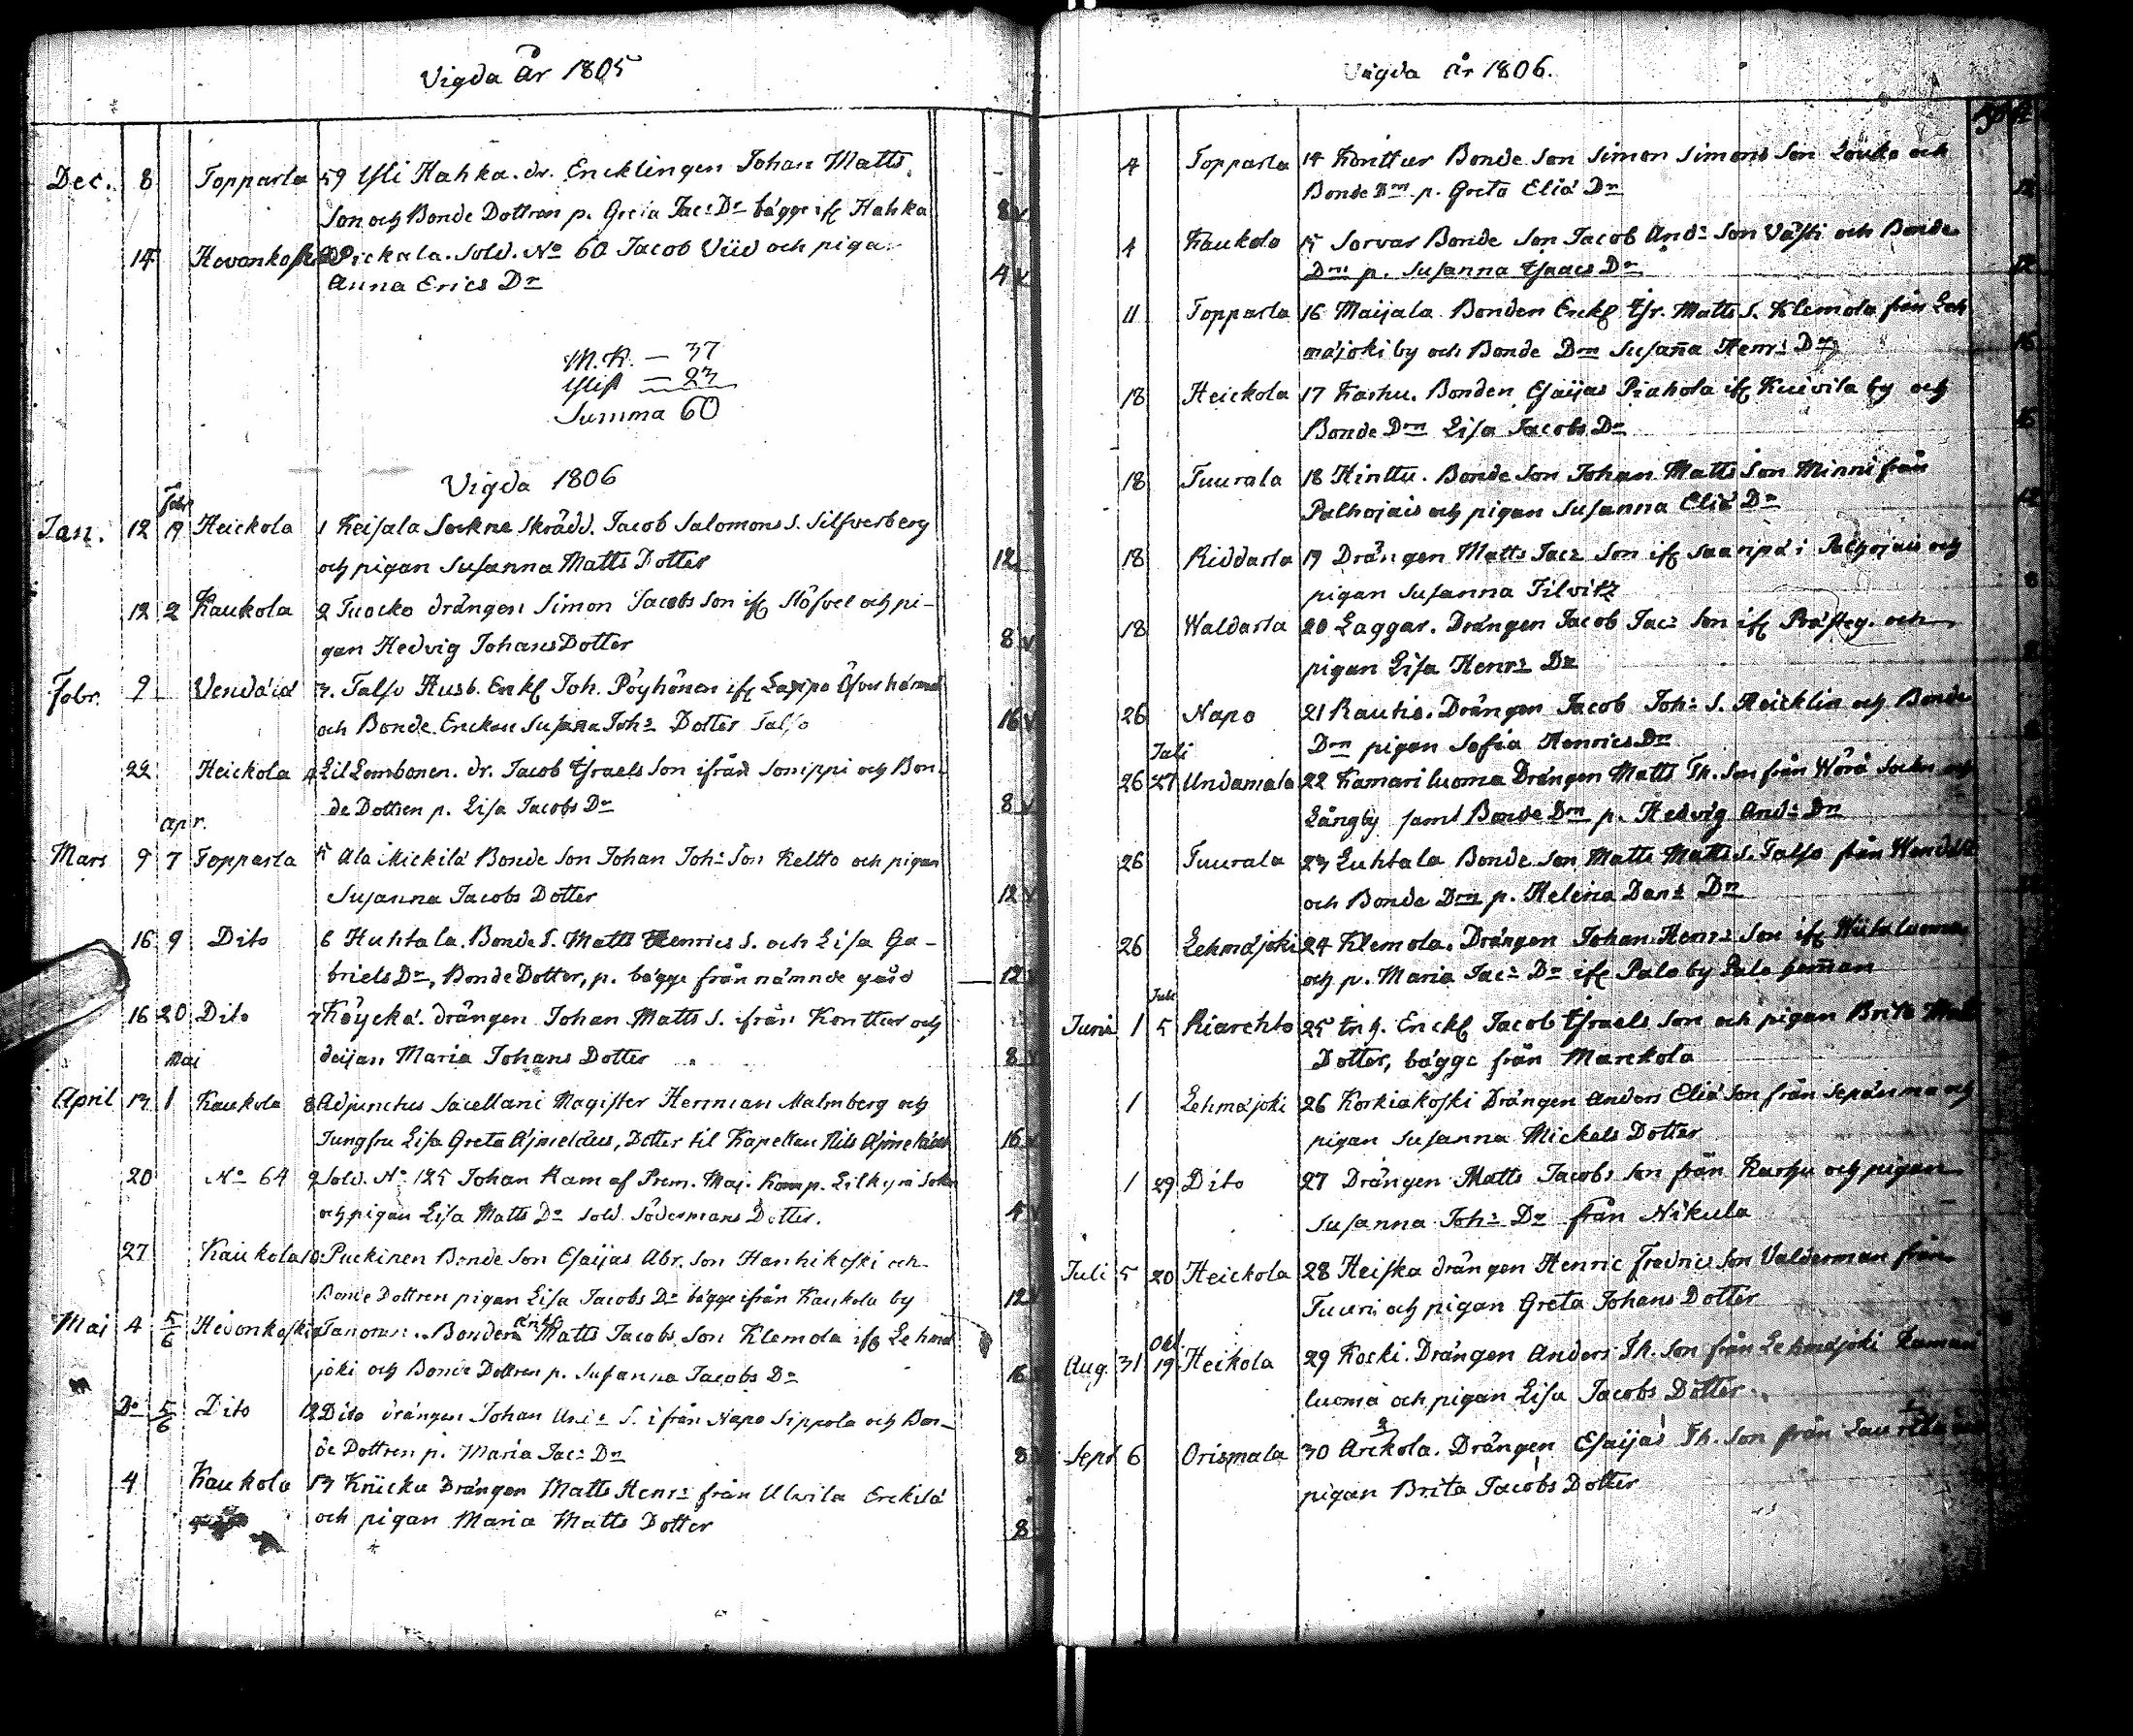 Vigda År 1805
Dec. 8 Topparla 59 Yli Hahka. dr. Encklingen Johan Matts
Son och Bonde Dottren p. Greta Jac: Dr bägge if Hahka 8 v
14 Hevonkoski 60 Pickala. Sold. No 60 Jacob Viid och piga
Anna Erics Dr 4 v
M.K. — 37
Ylist — 23
Summa 60
Vigda 1806
Febr
Jan. 12 19 Heickola 1 Keisala Sockne Skrädd. Jacob Salomons S. Silfverberg
och pigan Susanna Matts Dotter 12
12 2 Kaukola 2 Tuocko drängen Simon Jacobs Son if och pi-
gan Hedvig Johans Dotter 8 v
Febr. 9 Vendälä 3. Talso Husb. Enkl Joh. Pöyhönen if Lappo Öfverhärmä
och Bonde Enckan Susanna Joh: Dotter Talso 16 v
22 Heickola 4 Lill Lombonen. dr. Jacob Israels Son ifrån Sonippi och Bon-
de Dottren p. Lisa Jacobs Dr 8 v
apr.
Mars 9 7 Topparla 5 Ala Mickilä Bonde Son Johan Joh: Son Keltto och pigan
Susanna Jacobs Dotter 12 v
16 9 Dito 6 Huhtala. Bonde S. Matts Henrics S. och Lisa Ga-
briels Dr, Bonde Dotter, p. bägge från nämnde gård 12
16 20 Dito 7 Köyckä. drängen Johan Matts S. från Konttur och
deijan Maria Johans Dotter 8 v
Maj
April 13 1 Kaukola 8 Adjunctus Sacellani Magister Herman Malmberg och
Jungfru Lisa Greta Ajmelæus, Dotter til Kapellan Nils Ajmelæus 16 v
20 No 64 9 Sold. No 125 Johan Ram af Prem. Maj. Komp. Lilkyrå Sokn
och pigan Lisa Matts Dr Sold Södermans Dotter. 4 v
27 Kaukola 10 Puckinen Bonde Son Esaijas Abr. Son Hanhikoski och
Bonde Dottren pigan Lisa Jacobs Dr bägge ifrån Kaukola by 12
Maj 4 5/6 Hevonkoski 11 Matts Jacobs Son Klemola if Lehmä
joki och Bonde Dottren p. Susanna Jacobs Dr 16
Do 5/6 Dito 12 Dito drängen Johan And: S. ifrån Napo Sippola och Bon-
de Dottren p. Maria Jac: Dr 8
4 Kaukola 13 Knicku Drängen Matts Henr: från Ulvila Erckilä
och pigan Maria Matts Dotter 8
Vigda År 1806.
4 Topparla 14 Konttur Bonde Son Simon Simons Son Louko och
Bonde Drn p. Greta Eliä Dr 12
4 Kaukola 15 Sorvar Bonde Son Jacob And: Son Västi och Bonde
Drn p. Susanna Isaacs Dr 12
11 Topparla 16 Maijala Bonden Enckl Isr. Matts S. Klemola från Leh
mäjoki by och Bonde Drn Susanna Henr: Dr 16
18 Heickola 17 Karhu. Bonden Esaijas Piahola if Kuivila by och
Bonde Drn Lisa Jacobs Dr 16
18 Tuurala 18 Hinttu. Bonde Son Johan Matts Son Minni från
Palhojais och pigan Susanna Eliä Dr 12
18 Riddarla 19 Drängen Matts Jac: Son if Saaripä i Palhojais och
pigan Susanna Tilvitz 8
18 Waldarla 20 Laggar. Drängen Jacob Jac: Son if Prästeg. och
pigan Lisa Henr: Dr
26 Napo 21 Rautio. Drängen Jacob Joh: S. Heicklin och Bonde
Drn pigan Sofia Henrics Dr
Juli
26 27 Undamala 22 Kamariluoma Drängen Matts Th. Son från Wörå Sockn och
Långby samt Bonde Drn p. Hedvig And: Dr
26 Tuurala 23 Luhtala Bonde Son Matts Matts S. Talso från Wendälä
och Bonde Drn p. Helena Dan: Dr
26 Lehmäjoki 24 Klemola. Drängen Johan Henr: Son if Wiitaluoma
och p. Maria Jac: Dr if Palo by Palo heman
Juli
Juni 1 5 Riarehto 25 Inh. Enckl Jacob Israels Son och pigan Brita Matts
Dotter, bägge från Marckola
1 Lehmäjoki 26 Korkiakoski Drängen Anders Eliä Son från Sepänma och
pigan Susanna Mickels Dotter
1 29 Dito 27 Drängen Matts Jacobs Son från Karhu och pigan
Susanna Joh: Dr från Nikula
Juli 5 20 Heickola 28 Heiska drängen Henric Fredrics Son Valderman från
Tuuri och pigan Greta Johans Dotter
Okt
Aug. 31 19 Heikola 29 Koski. Drängen Anders Th. Son från Lehmäjoki Kamari
luoma och pigan Lisa Jacobs Dotter
Sept 6 Orismala 30 Arckola. Drängen Esaijas Th. Son från
pigan Brita Jacobs Dotter